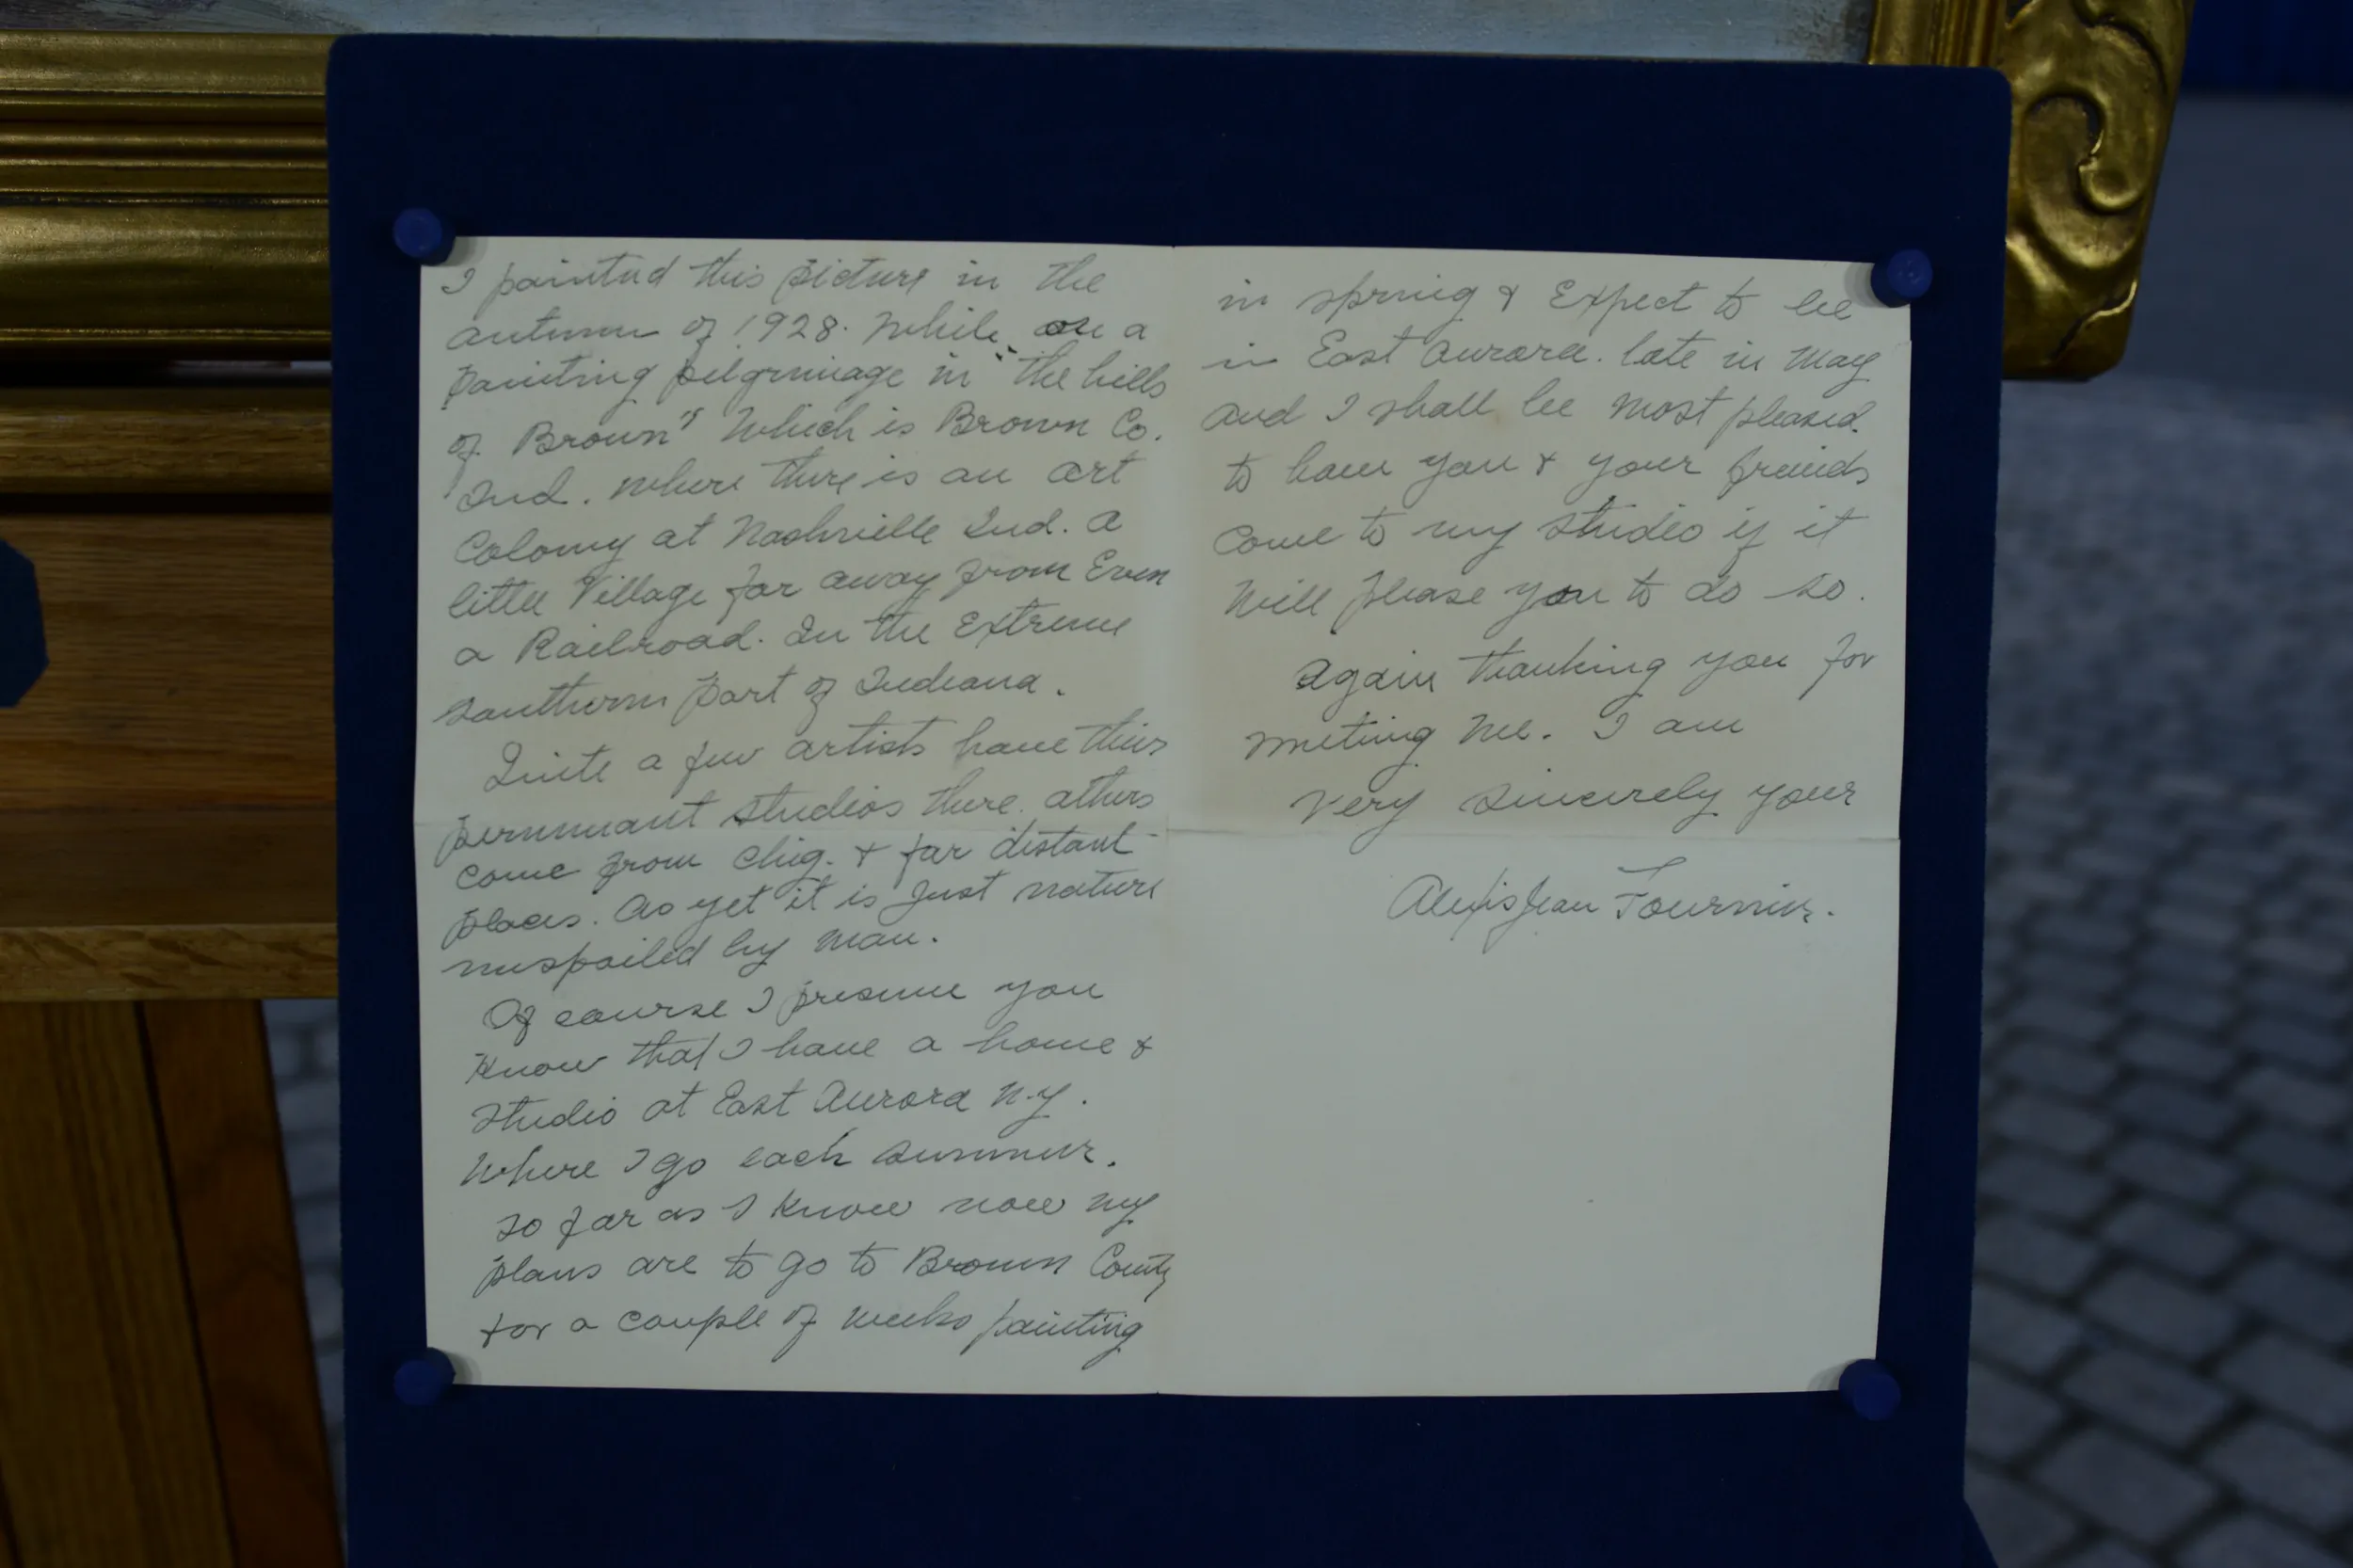 I painted this picture in the
autumn of 1928. While on a
painting pilgrimage in "the hills
of Brown" Which is Brown Co.
Ind. where there is an art
Colony at Nashville Ind. a
little Village far away from Even
a Railroad. In the Extreme
southern part of Indiana.
Quite a few artists have their
permanant studios there. others
come from Chig. & far distant
places. As yet it is Just nature
unspoiled by man.
Of course I presume you
Know that I have a home &
studio at East Aurora N.Y.
Where I go each summer.
so far as I Know now my
plans are to go to Brown County
for a couple of weeks painting
in spring & Expect to be
in East Aurora. late in May
and I shall be most pleased
to have you & your friends
Come to my studio if it
Will please you to do so.
Again thanking you for
writing me. I am
Very sincerely your
Alexis Jean Fournier.